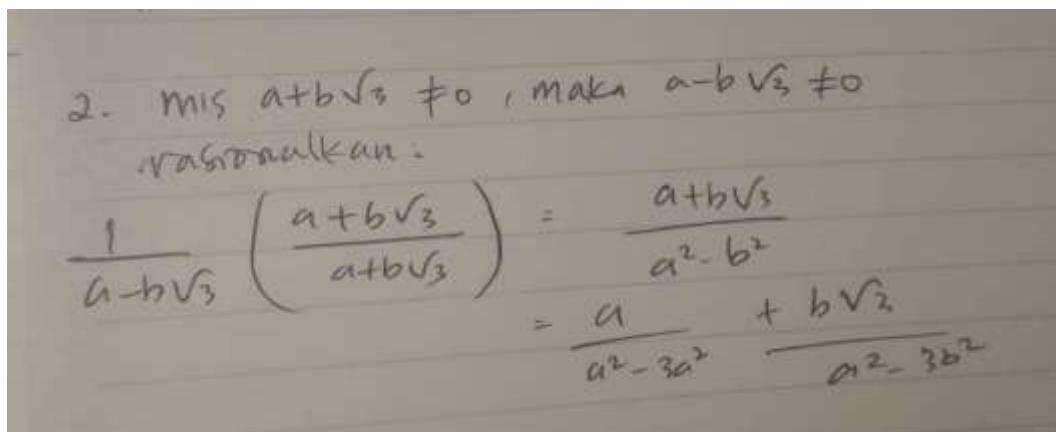 2. mis a+b√3 ≠0, maka a-b√3 ≠0
rasionalkan.
1/(a-b√3) ((a+b√3)/(a+b√3)) = (a+b√3)/(a²-b²)
= a/(a²-3a²) + b√3/(a²-3b²)